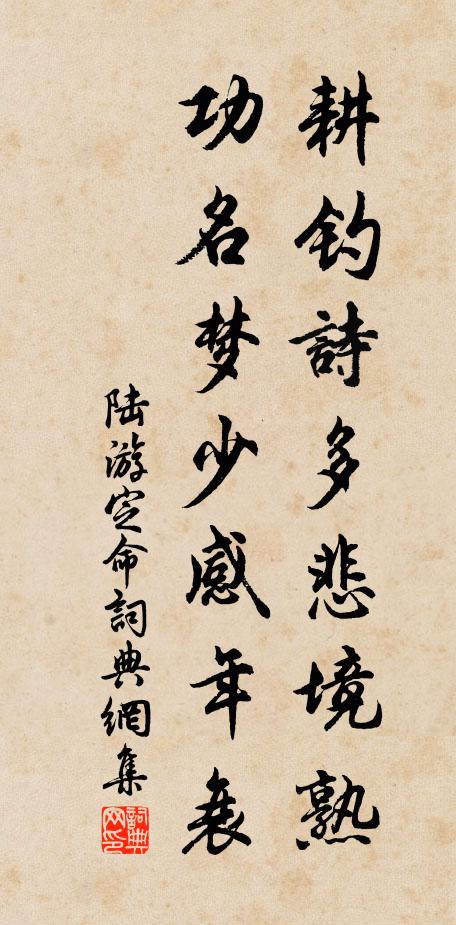 耕钓詩多悲境熟
功名梦少感年衰
陆游定命詞典網集
詞典网印